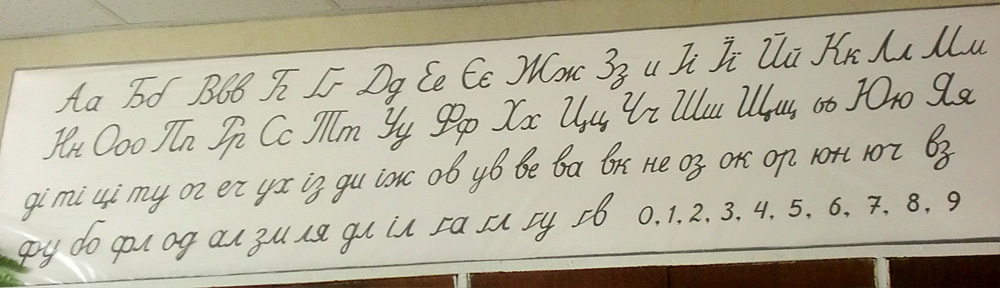 Аа Бб Ввв Гг Ґґ Дд Ее Єє Жж Зз и Іі Її Йй Кк Лл Мм
Нн Ооо Пп Рр Сс Тт Уу Фф Хх Цц Чч Шш Щщ ьь Юю Яя
ді ті ці ту ог еч ух із ди іж ов ув ве ва вк не оз ок ор юн юч вз
фу бо фл од ал зм ля дл іл га гл гу гв 0, 1, 2, 3, 4, 5, 6, 7, 8, 9